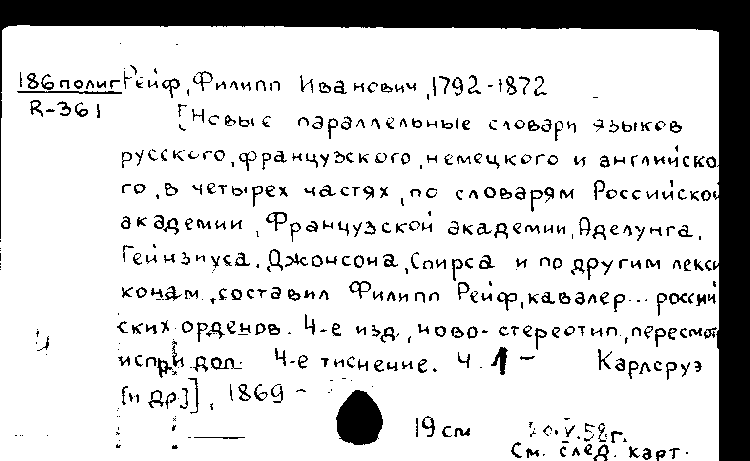 186полиг Рейф, Филипп Иванович, 1792-1872
R-361 [Новые параллельные словари языков
русского, французского, немецкого и английско
го, в четырех частях, по словарям Российской
академии, Французской академии, Аделунга,
Гейнзиуса, Джонсона, Спирса и по другим лекси
конам, составил Филипп Рейф, кавалер... россий
ских орденов. 4-е изд., ново-стереотип, пересмот
испр и доп. 4-е тиснение. Ч. 1 - Карлсруэ
4
[и др]], 1869 -
19 см V.58г.
См. след. карт.